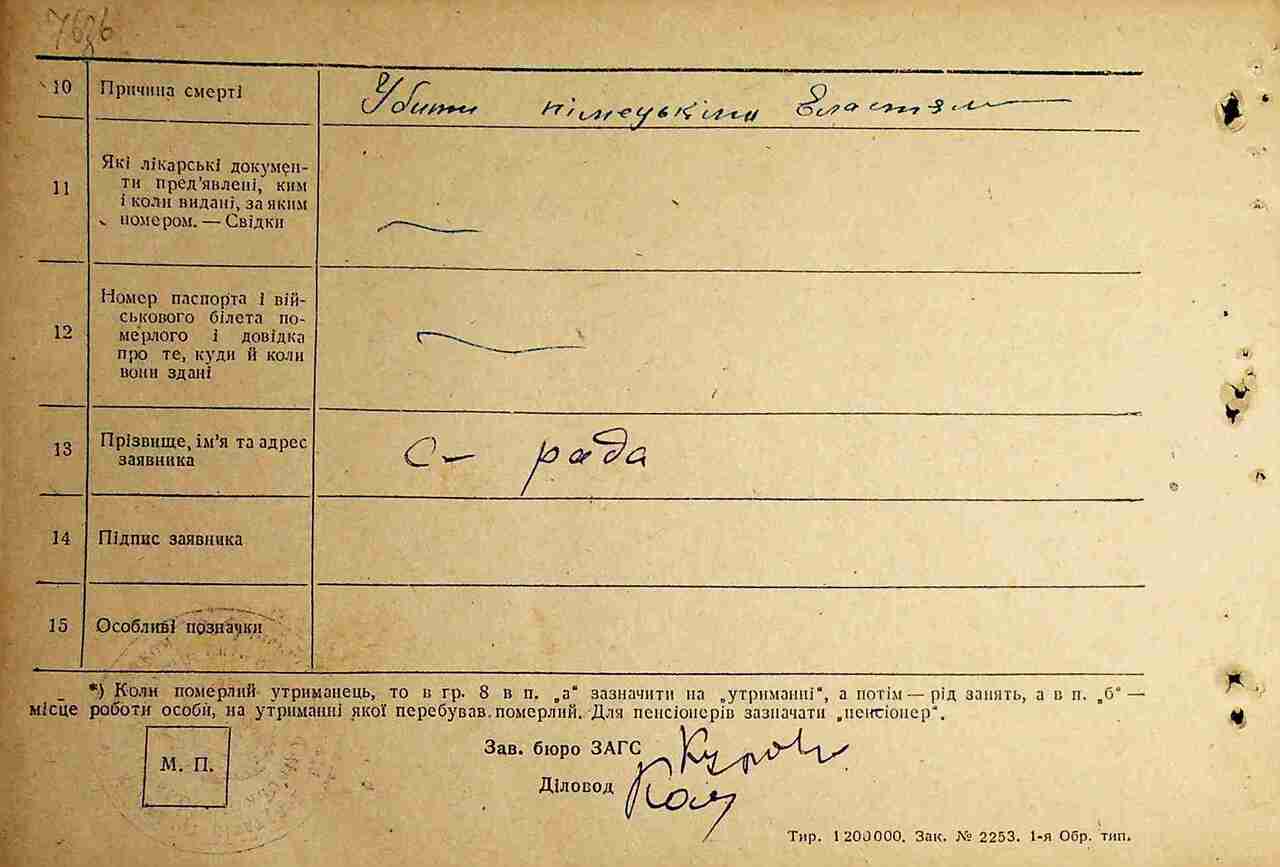 7636
10 Причина смерті Убити німецькіми властям
11 Які лікарські докумен-
ти пред’явлені, ким
і коли видані, за яким
номером. — Свідки
12 Номер паспорта і вій-
ськового білета по-
мерлого і довідка
про те, куди й коли
вони здані
13 Прізвище, ім’я та адрес
заявника
С- рада
14 Підпис заявника
15 Особливі позначки
*) Коли померлий утриманець, то в гр. 8 в п. „а“ зазначити на „утриманні“, а потім — рід занять, а в п. „б“ —
місце роботи особи, на утриманні якої перебував померлий. Для пенсіонерів зазначати „пенсіонер“.
М. П.
Зав. бюро ЗАГС
Діловод
Тир. 1200000. Зак. № 2253. 1-я Обр. тип.